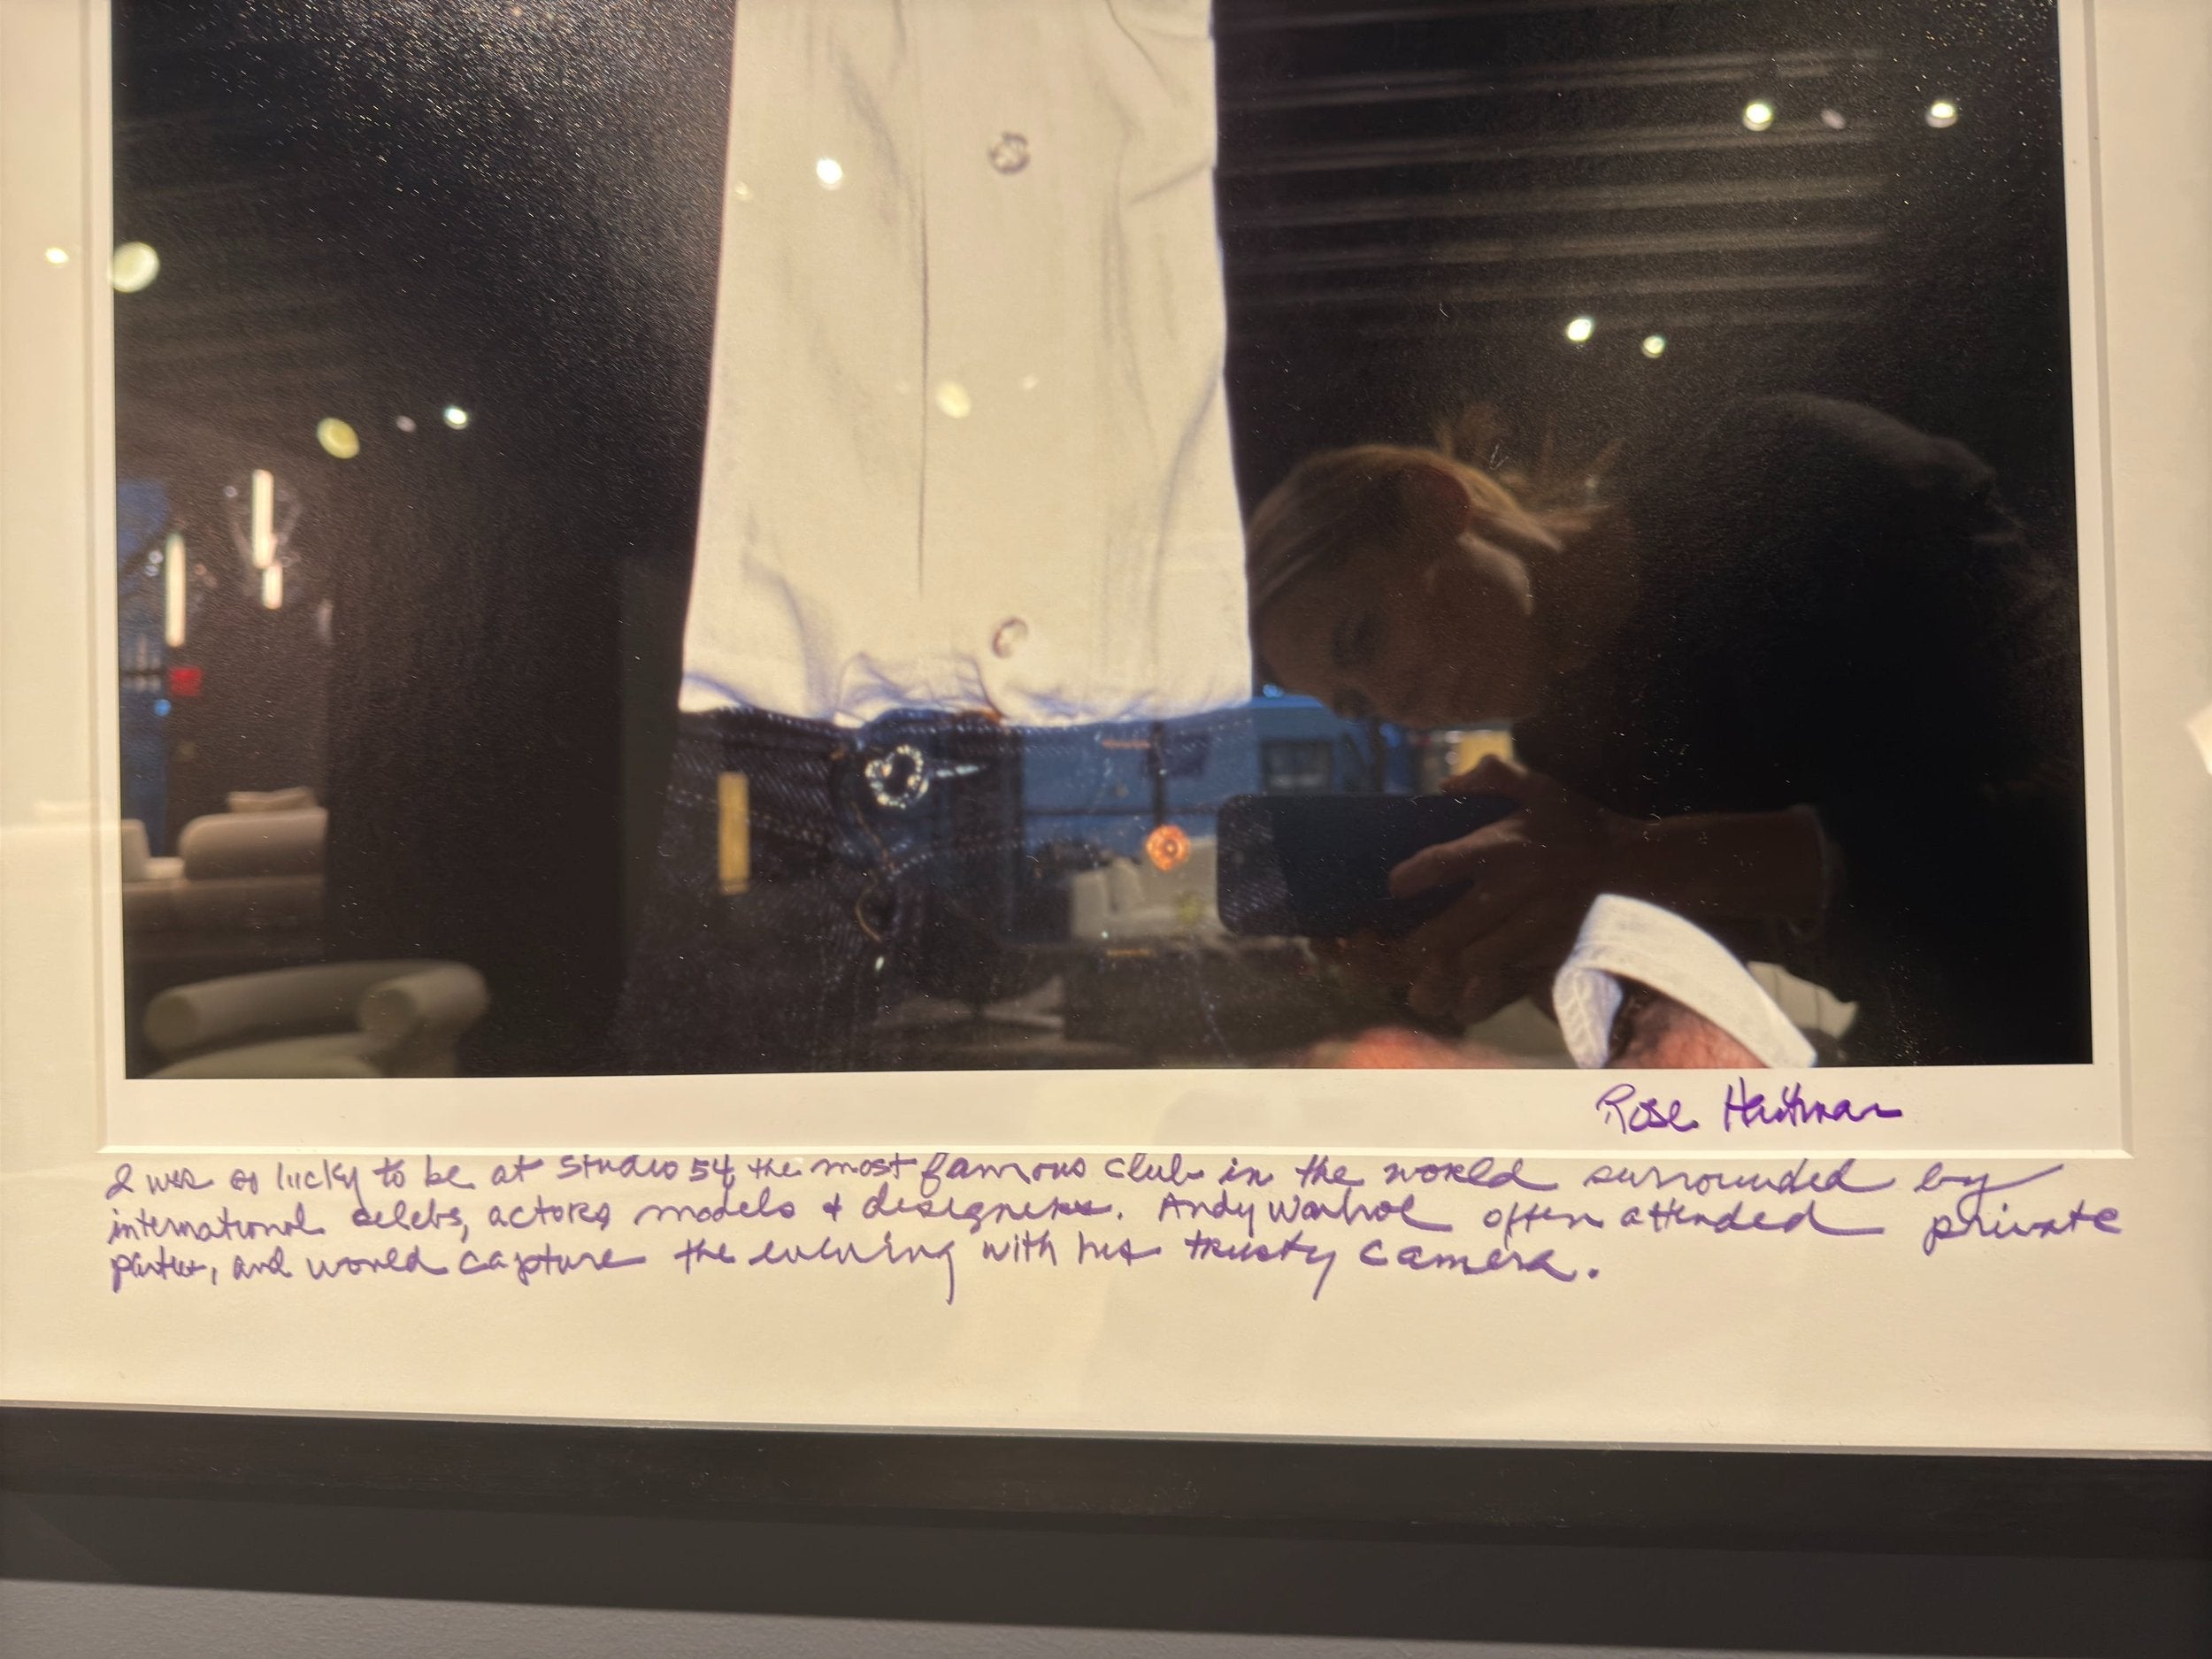 Rose Hartman
I was so lucky to be at Studio 54, the most famous club in the world surrounded by
international celebs, actors, models & designers. Andy Warhol often attended private
parties, and would capture the evening with his trusty camera.